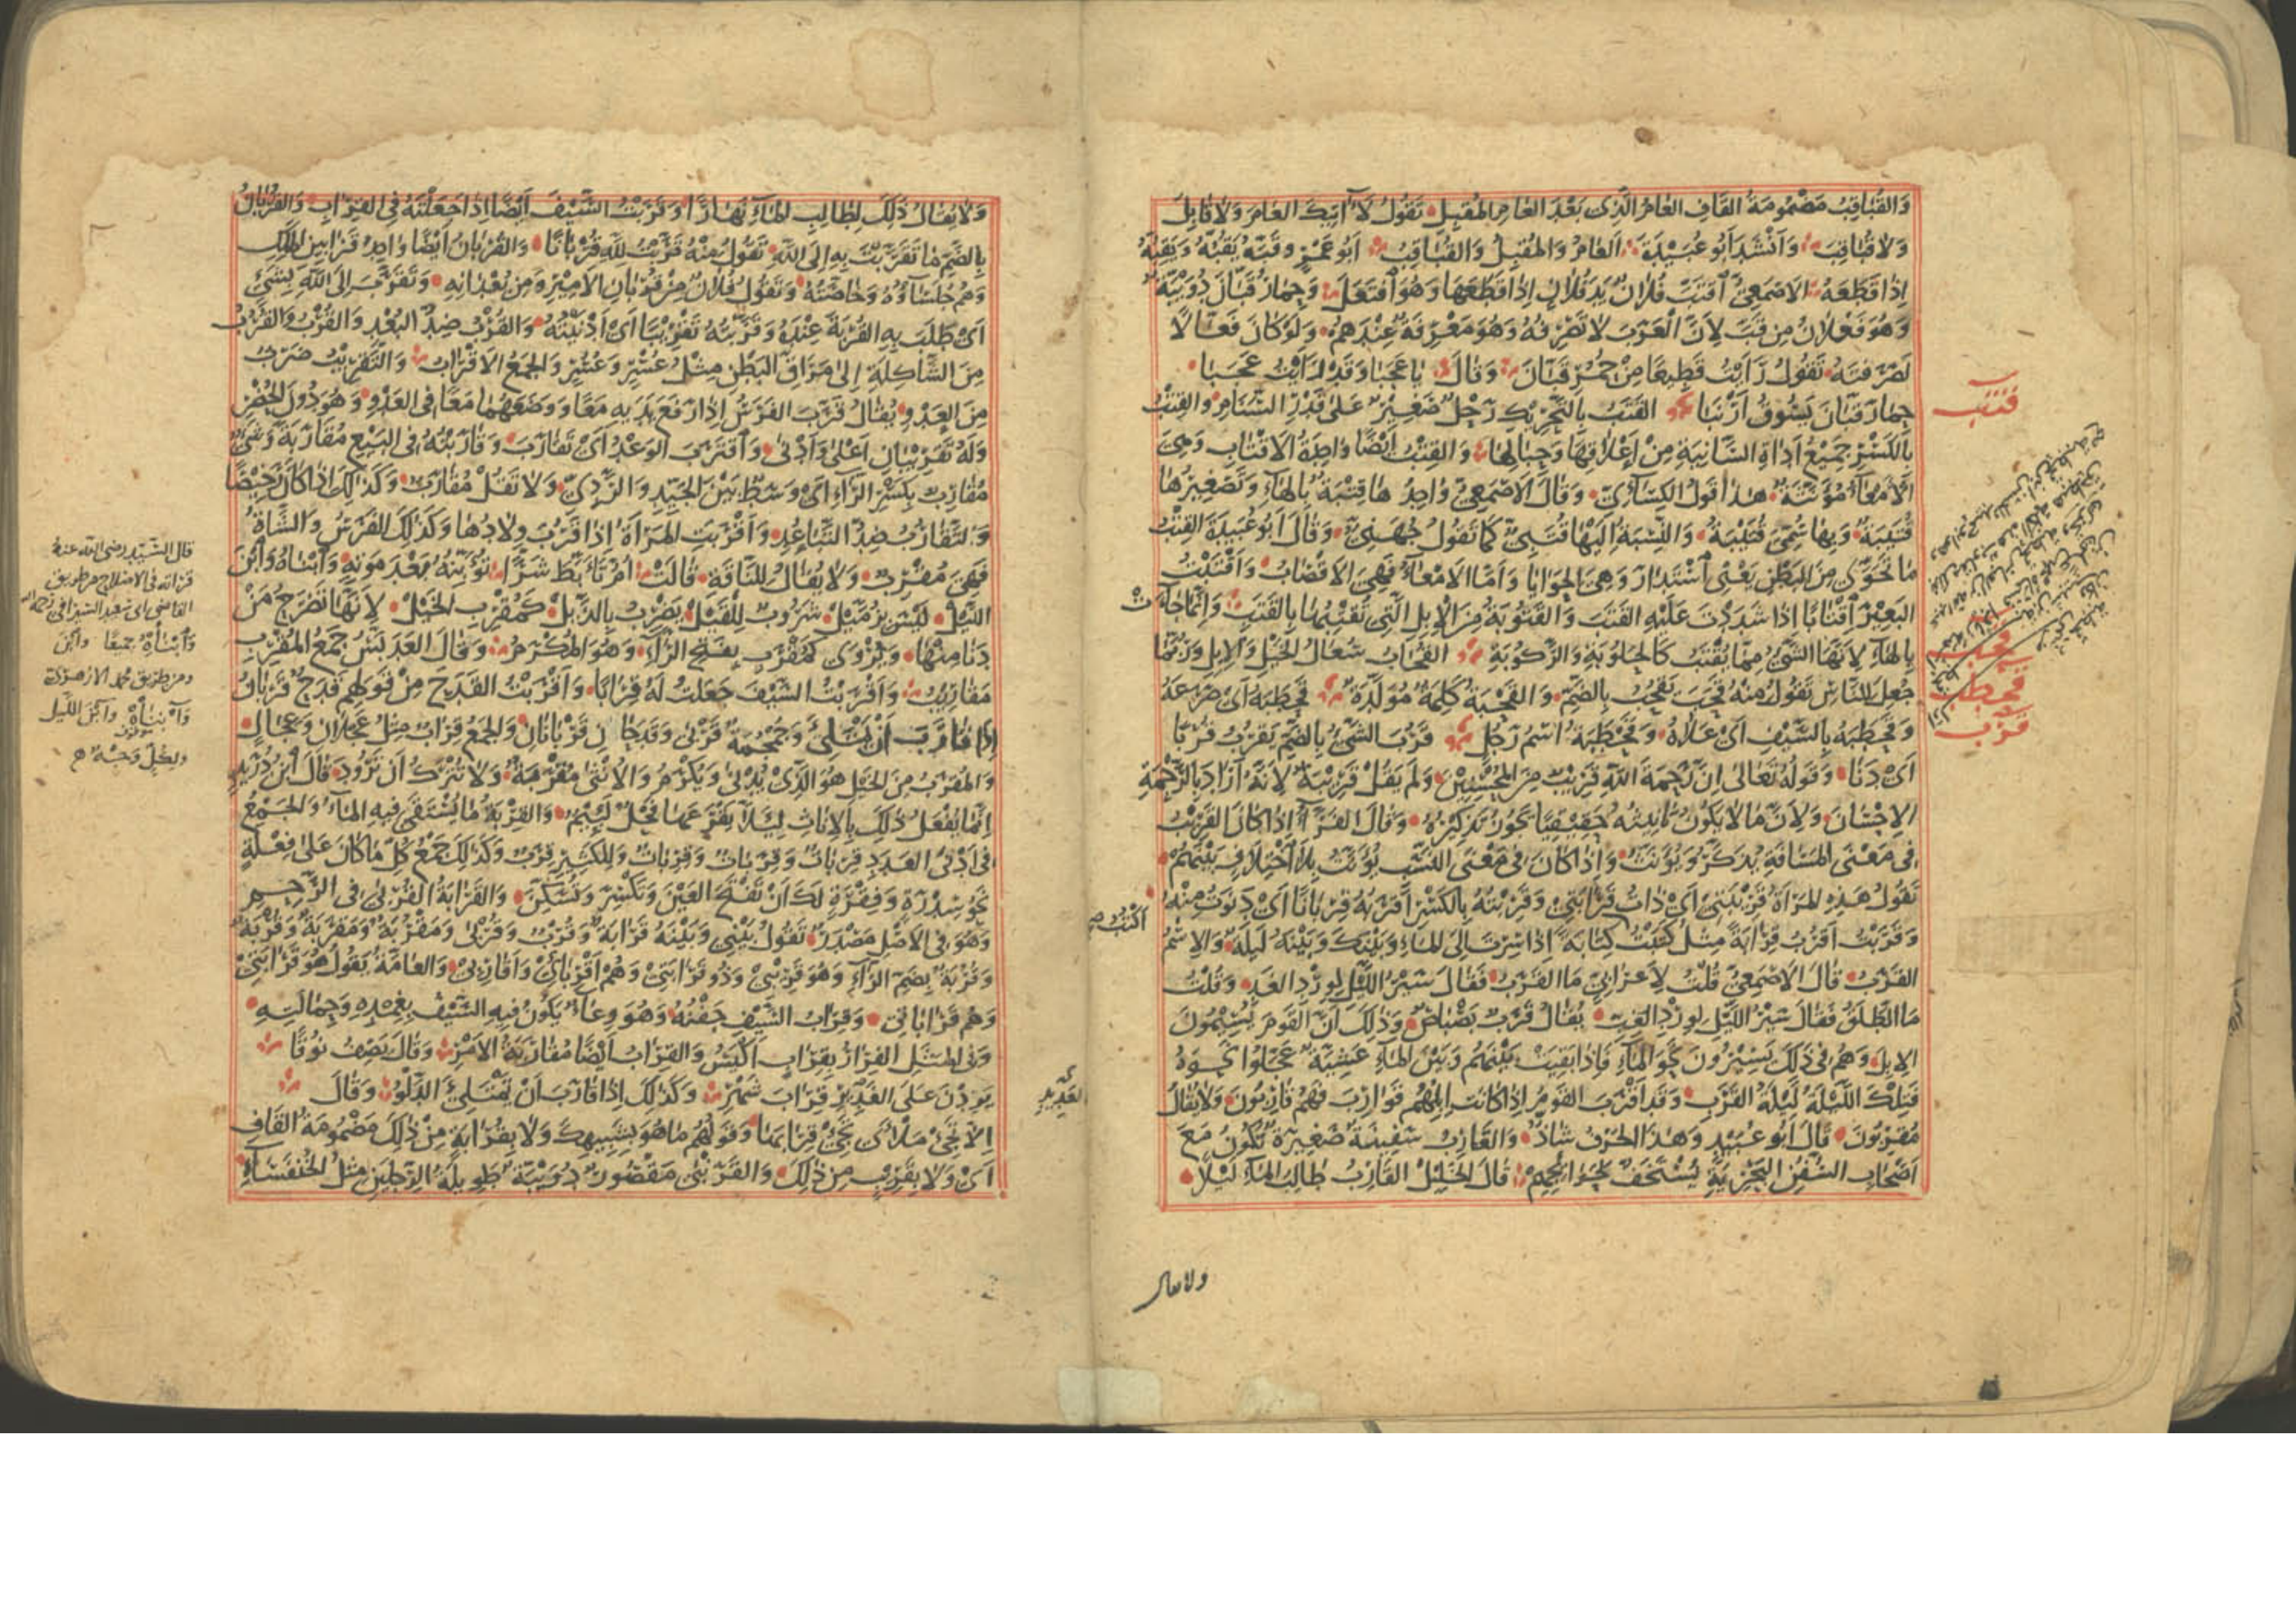 وَالقُبَاقِبُ مَضْمُومَةُ القَافِ العَامُ الَّذِى بَعْدَ العَامِ المُقْبِلِ تَقُولُ لَا آتِيكَ العَامَ وَلَا قَابِلَ
وَلَا قُبَاقِبَ وَأَنْشَدَ أَبُو عُبَيْدَةَ العَامُ وَالمُقْبِلُ وَالقُبَاقِبُ أَبُو عَمْرٍو قَبَّهُ يَقُبُّهُ وَيَقِبُّهُ
إِذَا قَطَعَهُ الاَصْمَعِيُّ اَقْتَبَّ فُلَانٌ يَدَ فُلَانٍ إِذَا قَطَعَهَا وَهُوَ اَفْتَعَلَ وَحِمَارُ قَبَّانَ دُوَيْبَّةٌ
وَهُوَ فَعْلَانُ مِن قَبَّ لِاَنَّ العَرَبَ لَا تَصْرِفُهُ وَهُوَ مَعْرِفَةٌ عِنْدَهُمْ وَلَوْ كَانَ فَعَّالًا
لَصَرَفَتْهُ تَقُولُ رَاَيْتُ قَطِيعًا مِنْ حُمُرِ قَبَّانَ وَقَالَ يَا عَجَبَا وَقَدْ رَاَيْتُ عَجَبَا
حِمَارَ قَبَّانَ يَسُوقُ اَرْنَبَا القَتَبُ بِالتَّحْرِيكِ رَحْلٌ صَغِيرٌ عَلَى قَدْرِ السَّنَامِ وَالقِتْبُ
بِالكَسْرِ جَمِيعُ اَدَاةِ السَّانِيَةِ مِنْ اَعْلَاقِهَا وَحِبَالِهَا وَالقِتْبُ اَيْضًا وَاحِدَةُ الاَقْتَابِ وَهِيَ
الاَمْعَاءُ مُؤَنَّثَةٌ هذا قَولُ الكِسَائِيِّ وَقَالَ الاَصْمَعِيُّ وَاحِدُهَا قِتْبَةٌ بِالهَاءِ وَتَصْغِيرُهَا
قُتَيْبَةٌ وَبِهَا سُمِّيَ قُتَيْبَةُ وَالنِّسْبَةُ اِلَيْهَا قُتَبِيٌّ كَمَا تَقُولُ جُهَنِيٌّ وَقَالَ اَبُو عُبَيْدَةَ القِتْبُ
مَا تَحَوَّى مِنَ البَطْنِ يَعْنِى اَسْتَدَارَ وَهِيَ الحَوَايَا وَاَمَّا الاَمْعَاءُ فَهِيَ الاَقْصَابُ وَاَقْتَبْتُ
البَعِيرَ اَقْتَابًا اذَا شَدَدْتَ عَلَيْهِ القَتَبَ وَالقَتُوبَةُ مِنَ الاِبِلِ الَّتِى تُقْتِبُهَا بِالقَتَبِ وَاِنَّمَا جَاءَتْ
بِالهَاءِ لِاَنَّهَا الشَّيْءُ مِمَّا يُقْتَبُ كَالحَلُوبَةِ وَالرَّكُوبَةِ القُحَابُ سُعَالُ الخَيْلِ وَالاِبِلِ وَرُبَّمَا
جُعِلَ لِلنَّاسِ تَقُولُ مِنْهُ قَحَبَ يَقْحُبُ بِالضَّمِّ وَالقَحْبَةُ كَلِمَةٌ مُوَلَّدَةٌ قَحْطَبَهُ اَىْ صَرَعَهُ
وَقَحْطَبَهُ بِالسَّيْفِ اَىْ عَلَاهُ وَقَحْطَبَةُ اسْمُ رَجُلٍ قَرُبَ الشَّىْءُ بِالضَّمِّ يَقْرُبُ قُرْبًا
اَىْ دَنَا وَقَولُهُ تَعَالَى اِنَّ رَحْمَةَ اللهِ قَرِيبٌ مِنَ المُحْسِنِينَ وَلَمْ يَقُلْ قَرِيبَةٌ لِاَنَّهُ اَرَادَ بِالرَّحْمَةِ
الاِحْسَانَ وَلِاَنَّ مَا لَا يَكُونُ تَانِيثُهُ حَقِيقِيًّا يَجُوزُ تَذْكِيرُهُ وَقَالَ الفَرَّاءُ اِذَا كَانَ القَرِيبُ
فِى مَعْنَى المَسَافَةِ يُذَكَّرُ وَيُؤَنَّثُ وَاِذَا كَانَ فِى مَعْنَى النَّسَبِ يُؤَنَّثُ بِلَا اَخْتِلَافٍ بَيْنَهُمْ
تَقُولُ هَذِهِ المَرْاَةُ قَرِيبَتِى اَىْ ذَاتُ قَرَابَتِى وَقَرِبْتُهُ بِالكَسْرِ اَقْرَبُهُ قِرْبَانًا اَىْ دَنَوْتُ مِنْهُ
وَقَرَبْتُ اَقْرُبُ قِرَابَةً مِثْلُ كَتَبْتُ كِتَابَةً اِذَا سِرْتَ اِلَى المَاءِ وَبَيْنَكَ وَبَيْنَهُ لَيْلَةٌ وَالاِسْمُ
القَرَبُ قَالَ الاَصْمَعِيُّ قُلْتُ لِاَعْرَابِيٍّ مَا القَرَبُ فَقَالَ سَيْرُ اللَّيْلِ لِوِرْدِ الغَدِ وَقُلْتُ
مَا الطَّلَقُ فَقَالَ سَيْرُ اللَّيْلِ لِوِرْدِ الغِبِّ يُقَالُ قَرَبٌ بَصْبَاصٌ وَذَلِكَ اَنَّ القَوْمَ يُسِيمُونَ
الاِبِلَ وَهُمْ فِى ذَلِكَ يَسِيرُونَ نَحْوَ المَاءِ فَاِذَا بَقِيَتْ بَيْنَهُمْ وَبَيْنَ المَاءِ عَشِيَّةٌ عَجَّلُوا نَحْوَهُ
فَتِلْكَ اللَّيْلَةُ لَيْلَةُ القَرَبِ وَقَدْ اَقْرَبَ القَوْمُ اِذَا كَانَتْ اِبِلُهُمْ قَوَارِبَ فَهُمْ قَارِبُونَ وَلَا يُقَالُ
مُقْرِبُونَ قَالَ اَبُو عُبَيْدٍ وَهَذَا الحَرْفُ شَاذٌّ وَالقَارِبُ سَفِينَةٌ صَغِيرَةٌ تَكُونُ مَعَ
اَصْحَابِ السُّفُنِ البَحْرِيَّةِ تُسْتَخَفُّ لِحَوَائِجِهِمْ قَالَ الخَلِيلُ القَارِبُ طَالِبُ المَاءِ لَيْلًا
ولا يقال
قتب
قحب
قحطب
قرب
اَكْتُبُ صح
وَلَا يُقَالُ ذَلِكَ لِطَالِبِ المَاءِ نَهَارًا وَقَرَبْتُ السَّيْفَ اَيْضًا اِذَا جَعَلْتَهُ فِى القِرَابِ وَالقُرْبَانُ
بِالضَّمِّ مَا تَقَرَّبْتَ بِهِ اِلَى اللهِ تَقُولُ مِنْهُ قَرَّبْتُ لِلهِ قُرْبَانًا وَالقُرْبَانُ اَيْضًا وَاحِدُ قَرَابِينِ المَلِكِ
وَهُمْ جُلَسَاؤُهُ وَخَاصَّتُهُ وَتَقُولُ فُلَانٌ مِنْ قُرْبَانِ الاَمِيرِ وَمِنْ بُعْدَانِهِ وَتَقَرَّبَ اِلَى اللهِ بِشَيْءٍ
اَىْ طَلَبَ بِهِ القُرْبَةَ عِنْدَهُ وَقَرَّبْتُهُ تَقْرِيبًا اَىْ اَدْنَيْتُهُ وَالقُرْبُ ضِدُّ البُعْدِ وَالقُرْبُ وَالقُرُبُ
مِنَ الشَّاكِلَةِ اِلَى مَرَاقِّ البَطْنِ مِثْلُ عُسْرٍ وَعُسُرٍ وَالجَمْعُ الاَقْرَابُ وَالتَّقْرِيبُ ضَرْبٌ
مِنَ العَدْوِ يُقَالُ قَرَّبَ الفَرَسُ اِذَا رَفَعَ يَدَيْهِ مَعًا وَوَضَعَهُمَا مَعًا فِى العَدْوِ وَهُوَ دُونَ الحُضْرِ
وَلَهُ تَقْرِيبَانِ اَعْلَى وَاَدْنَى وَاَقْتَرَبَ الوَعْدُ اَىْ تَقَارَبَ وَقَارَبْتُهُ فِى البَيْعِ مُقَارَبَةً وَشَيْءٌ
مُقَارِبٌ بِكَسْرِ الرَّاءِ اَىْ وَسَطٌ بَيْنَ الجَيِّدِ وَالرَّدِيِّ وَلَا تَقُلْ مُقَارَبٌ وَكَذَلِكَ اِذَا كَانَ رَخِيصًا
وَالتَّقَارُبُ ضِدُّ التَّبَاعُدِ وَاَقْرَبَتِ المَرْاَةُ اِذَا قَرُبَ وِلَادُهَا وَكَذَلِكَ الفَرَسُ وَالشَّاةُ
فَهِيَ مُقْرِبٌ وَلَا يُقَالُ لِلنَّاقَةِ قَالَتْ اُمُّ تَأَبَّطَ شَرًّا تُؤَبِّنُهُ بَعْدَ مَوْتِهِ وَابْنَاهُ وَابْنَ
اللَّيْلِ لَيْسَ بِزُمَّيْلِ شَرُوبٌ لِلْقَيْلِ يَضْرِبُ بِالذَّيْلِ كَمُقْرِبِ الخَيْلِ لِاَنَّهَا تَضْرَحُ مَنْ
دَنَا مِنْهَا وَيُرْوَى كَمُقْرَبٍ بِفَتْحِ الرَّاءِ وَهُوَ المُكْرَمُ وَقَالَ العَدَبَّسُ جَمْعُ المُقْرِبِ
مَقَارِيبُ وَاَقْرَبْتُ السَّيْفَ جَعَلْتُ لَهُ قِرَابًا وَاَقْرَبْتُ القَدَحَ مِنْ قَولِهِمْ قَدَحٌ قَرْبَانُ
اِذَا قَارَبَ اَنْ يَمْتَلِئَ وَجُمْجُمَةٌ قَرْبَى وَقَدَحَانِ قَرْبَانَانِ وَالجَمْعُ قِرَابٌ مِثْلُ عَجْلَانَ وَعِجَالٍ
وَالمُقْرَبُ مِنَ الخَيْلِ هُوَ الَّذِى يُدْنَى وَيُكْرَمُ وَالاُنْثَى مُقْرَبَةٌ وَلَا تُتْرَكُ اَنْ تَرُودَ قَالَ ابْنُ دُرَيْدٍ
اِنَّمَا يُفْعَلُ ذَلِكَ بِالاِنَاثِ لِئَلَّا يَقْرَعَهَا فَحْلٌ لَئِيمٌ وَالقِرْبَةُ مَا يُسْتَقَى فِيهِ المَاءُ وَالجَمْعُ
فِى اَدْنَى العَدَدِ قِرْبَاتٌ وَقِرِبَاتٌ وَقِرَبَاتٌ وَلِلكَثِيرِ قِرَبٌ وَكَذَلِكَ جَمْعُ كُلِّ مَا كَانَ عَلَى فِعْلَةٍ
نَحْوَ سِدْرَةٍ وَفِقْرَةٍ لَكَ اَنْ تَفْتَحَ العَيْنَ وَتَكْسِرَ وَتُسَكِّنَ وَالقَرَابَةُ القُرْبَى فِى الرَّحِمِ
وَهُوَ فِى الاَصْلِ مَصْدَرٌ تَقُولُ بَيْنِى وَبَيْنَهُ قَرَابَةٌ وَقُرْبٌ وَقُرْبَى وَمَقْرَبَةٌ وَمَقْرُبَةٌ وَقُرْبَةٌ
وَقُرُبَةٌ بِضَمِّ الرَّاءِ وَهُوَ قَرِيبِى وَذُو قَرَابَتِى وَهُمْ اَقْرِبَائِى وَاَقَارِبِى وَالعَامَّةُ تَقُولُ هُوَ قَرَابَتِى
وَهُمْ قَرَابَاتِى وَقِرَابُ السَّيْفِ جَفْنُهُ وَهُوَ وِعَاءٌ يَكُونُ فِيهِ السَّيْفُ بِغِمْدِهِ وَحِمَالَتِهِ
وَفِى المَثَلِ الفِرَارُ بِقِرَابٍ اَكْيَسُ وَالقِرَابُ اَيْضًا مُقَارَبَةُ الاَمْرِ وَقَالَ يَصِفُ نُوقًا
يَرِدْنَ عَلَى الغَدِيرِ قِرَابَ شَهْرٍ وَكَذَلِكَ اِذَا قَارَبَ اَنْ يَمْتَلِئَ الدَّلْوُ وَقَالَ
اِلَّا تَجِئْ مَلْأَى يَجِئْ قِرَابُهَا وَقَولُهُمْ مَا هُوَ بِشَبِيهِكَ وَلَا بِقُرَابَةٍ مِنْ ذَلِكَ مَضْمُومَةُ القَافِ
اَىْ وَلَا بِقَرِيبٍ مِنْ ذَلِكَ وَالقَرَنْبَى مَقْصُورٌ دُوَيْبَّةٌ طَوِيلَةُ الرِّجْلَيْنِ مِثْلُ الخُنْفَسَاءِ
قال السيد رضى الله عنه
القاضى ابى سعيد السيرافى رحمه الله
وابناه جميعا وابن
ومن طريق محمد الازهرى
وابن الليل
ولكل وجه